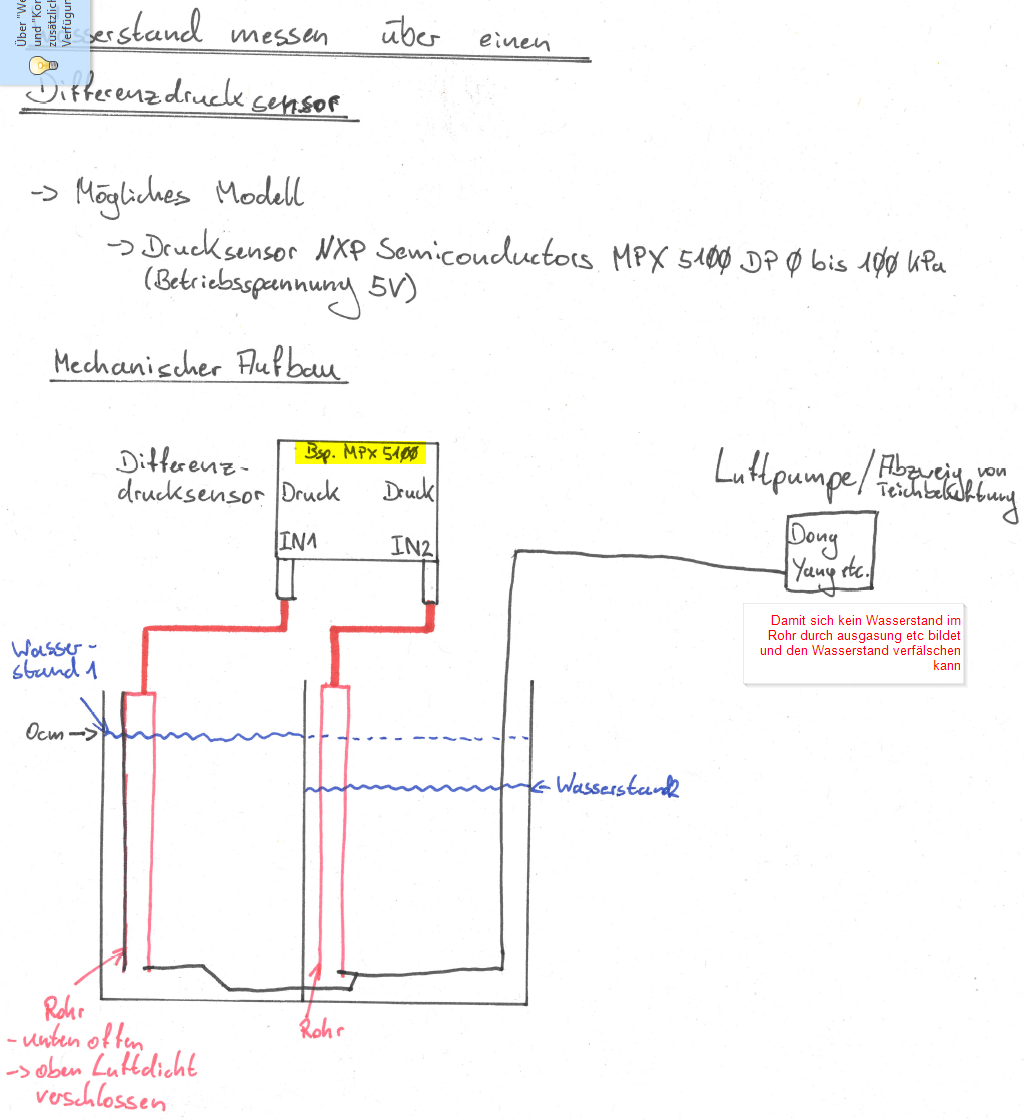 Über "We
und "Kor
zusätzlich
Verfügun
sserstand messen über einen
Differenzdrucksensor
-> Mögliches Modell
-> Drucksensor NXP Semiconductors MPX 5100 DP 0 bis 100 kPa
(Betriebsspannung 5V)
Mechanischer Aufbau
Differenz-
drucksensor
Bsp. MPX 5100
Druck Druck
IN1 IN2
Luftpumpe/Abzweig von
Teichbelüftung
Dong
Yang etc.
Damit sich kein Wasserstand im
Rohr durch ausgasung etc bildet
und den Wasserstand verfälschen
kann
Wasser-
stand 1
0cm ->
<- Wasserstand2
Rohr
- unten offen
-> oben Luftdicht
verschlossen
Rohr